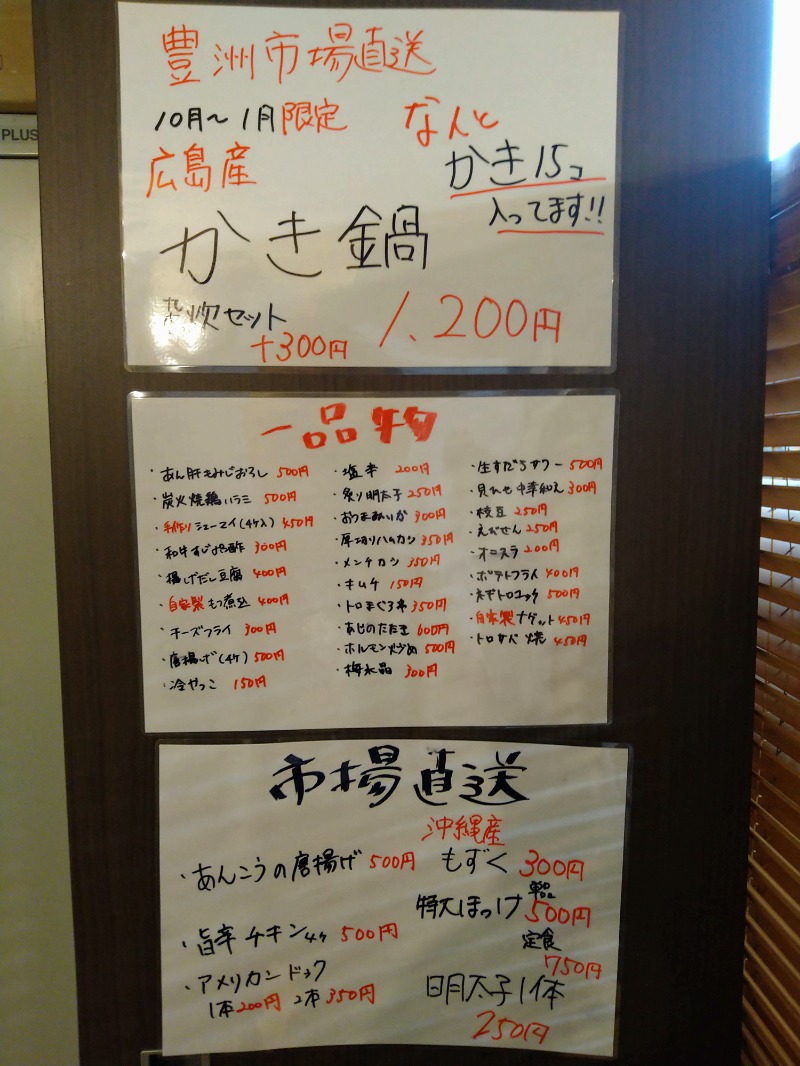 PLUS
豊洲市場直送
10月～1月限定
なんと
広島産
かき15コ
入ってます!!
かき鍋
雑炊セット
+300円
1,200円
一品物
・あん肝もみじおろし 500円
・炭火焼鶏ハラミ 500円
・手作りシューマイ(4ケ入) 450円
・和牛すじぽん酢 300円
・揚げだし豆腐 400円
・自家製もつ煮込 400円
・チーズフライ 300円
・唐揚げ(4ケ) 500円
・冷やっこ 150円
・塩辛 200円
・炙り明太子 250円
・おつまみいか 300円
・厚切りハムカツ 350円
・メンチカツ 350円
・キムチ 150円
・トロまぐろ串 350円
・あじのたたき 600円
・ホルモン炒め 500円
・梅水晶 300円
・生すだちサワー 500円
・貝ひも中華和え 300円
・枝豆 250円
・えびせん 250円
・オニスラ 200円
・ポテトフライ 400円
・ネギトロユッケ 500円
・自家製ナゲット 450円
・トロサバ焼 450円
市場直送
・あんこうの唐揚げ 500円
・旨辛チキン4ケ 500円
・アメリカンドック
1本200円 2本350円
沖縄産
もずく 300円
特大ほっけ 単品 500円
定食
750円
明太子1本
250円